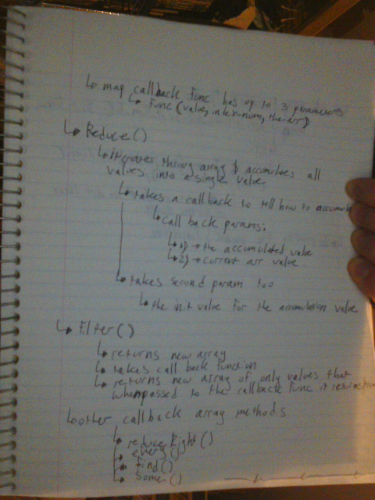 ↳ map callback func has up to 3 parameters
↳ func(value, index num, the arr)
↳ Reduce()
↳ iterates through array & accumulates all
values into a single value
↳ takes a callback to tell how to accumulate
↳ call back params:
↳ 1) → the accumulated value
↳ 2) → current arr value
↳ takes second param too
↳ the init value for the accumulation value
↳ Filter()
↳ returns new array
↳ takes call back function
↳ returns new array of only values that
when passed to the callback func it returns true
↳ other callback array methods
↳ reduceRight()
↳ every()
↳ find()
↳ some()